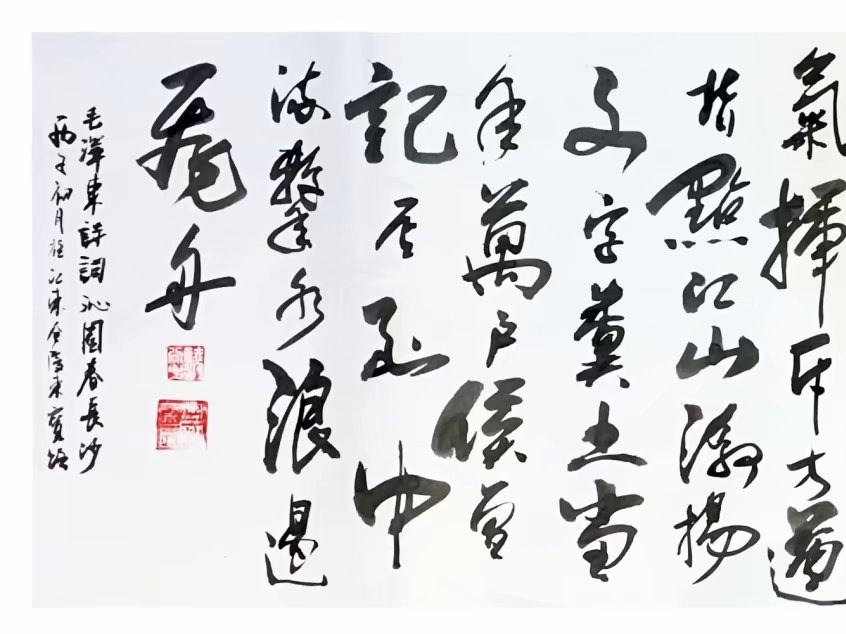 氣揮斥方遒
指點江山激揚
文字糞土當
年萬戶侯曾
記否到中
流擊水浪遏
飛舟
毛澤東詩詞沁園春長沙
丙子初月於江東